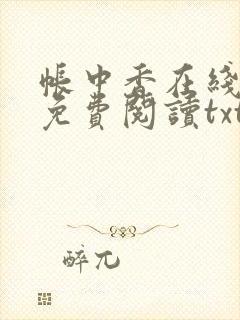 帳中香在綫
免費閱讀txt
醉兀